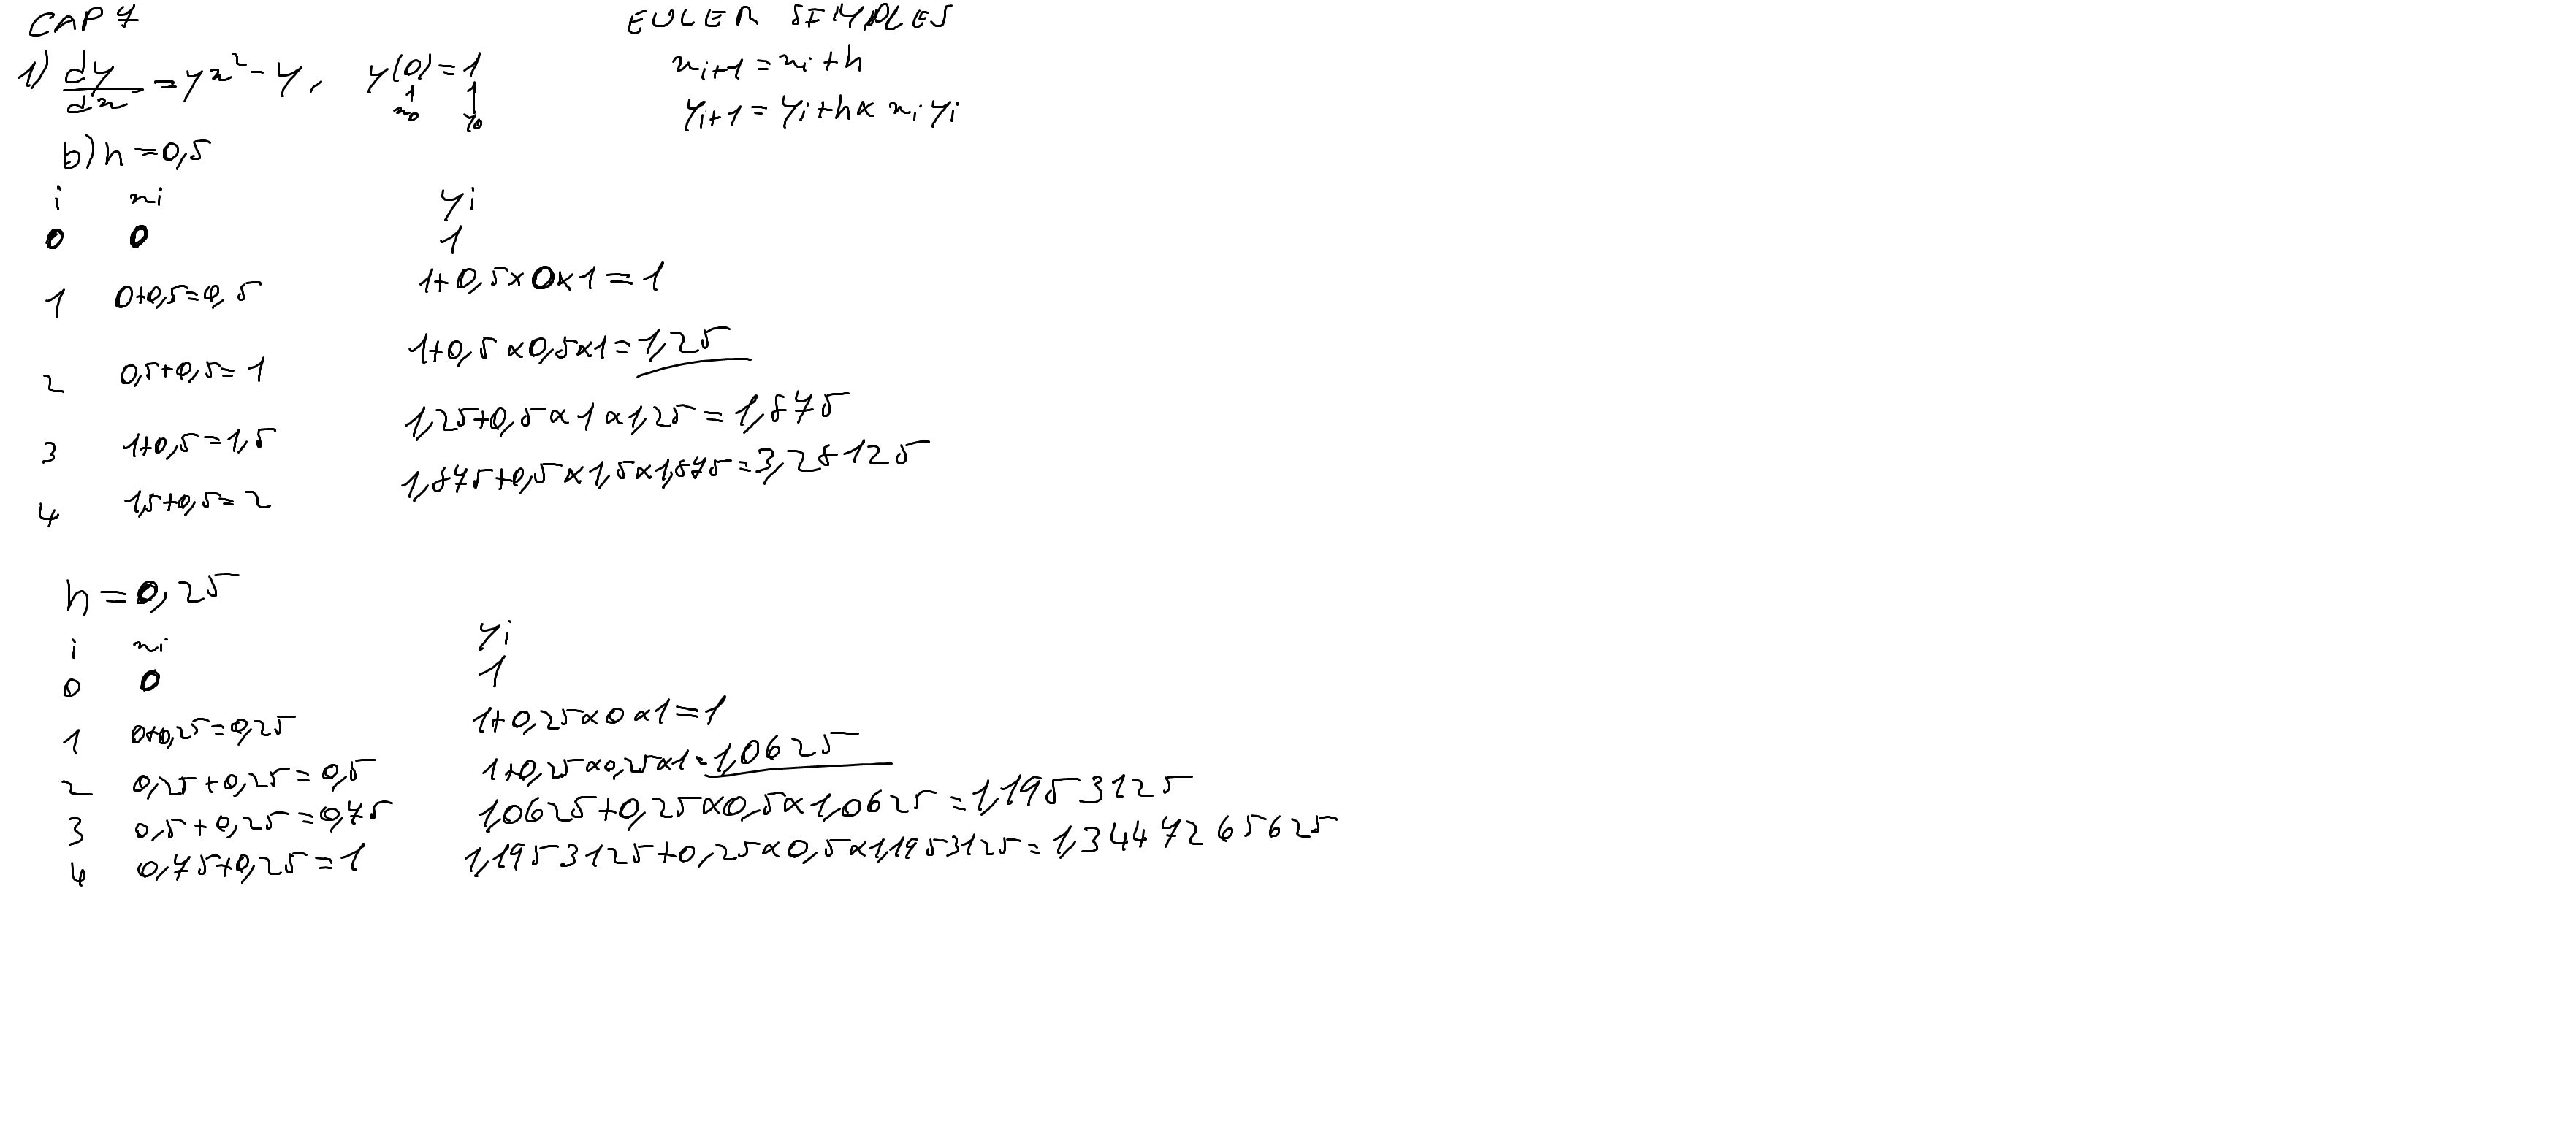 CAP 7
EULER SIMPLES
1) dy/dx = yx² - y, y(0) = 1
x₀ y₀
xi+1 = xi + h
yi+1 = yi + h × xi yi
b) h = 0,5
i xi yi
0 0 1
1 0+0,5=0,5 1+0,5×0×1=1
2 0,5+0,5=1 1+0,5×0,5×1=1,25
3 1+0,5=1,5 1,25+0,5×1×1,25=1,875
4 1,5+0,5=2 1,875+0,5×1,5×1,875=3,28125
h = 0,25
i xi yi
0 0 1
1 0+0,25=0,25 1+0,25×0×1=1
2 0,25+0,25=0,5 1+0,25×0,25×1=1,0625
3 0,5+0,25=0,75 1,0625+0,25×0,5×1,0625=1,1953125
4 0,75+0,25=1 1,1953125+0,25×0,5×1,1953125=1,3447265625